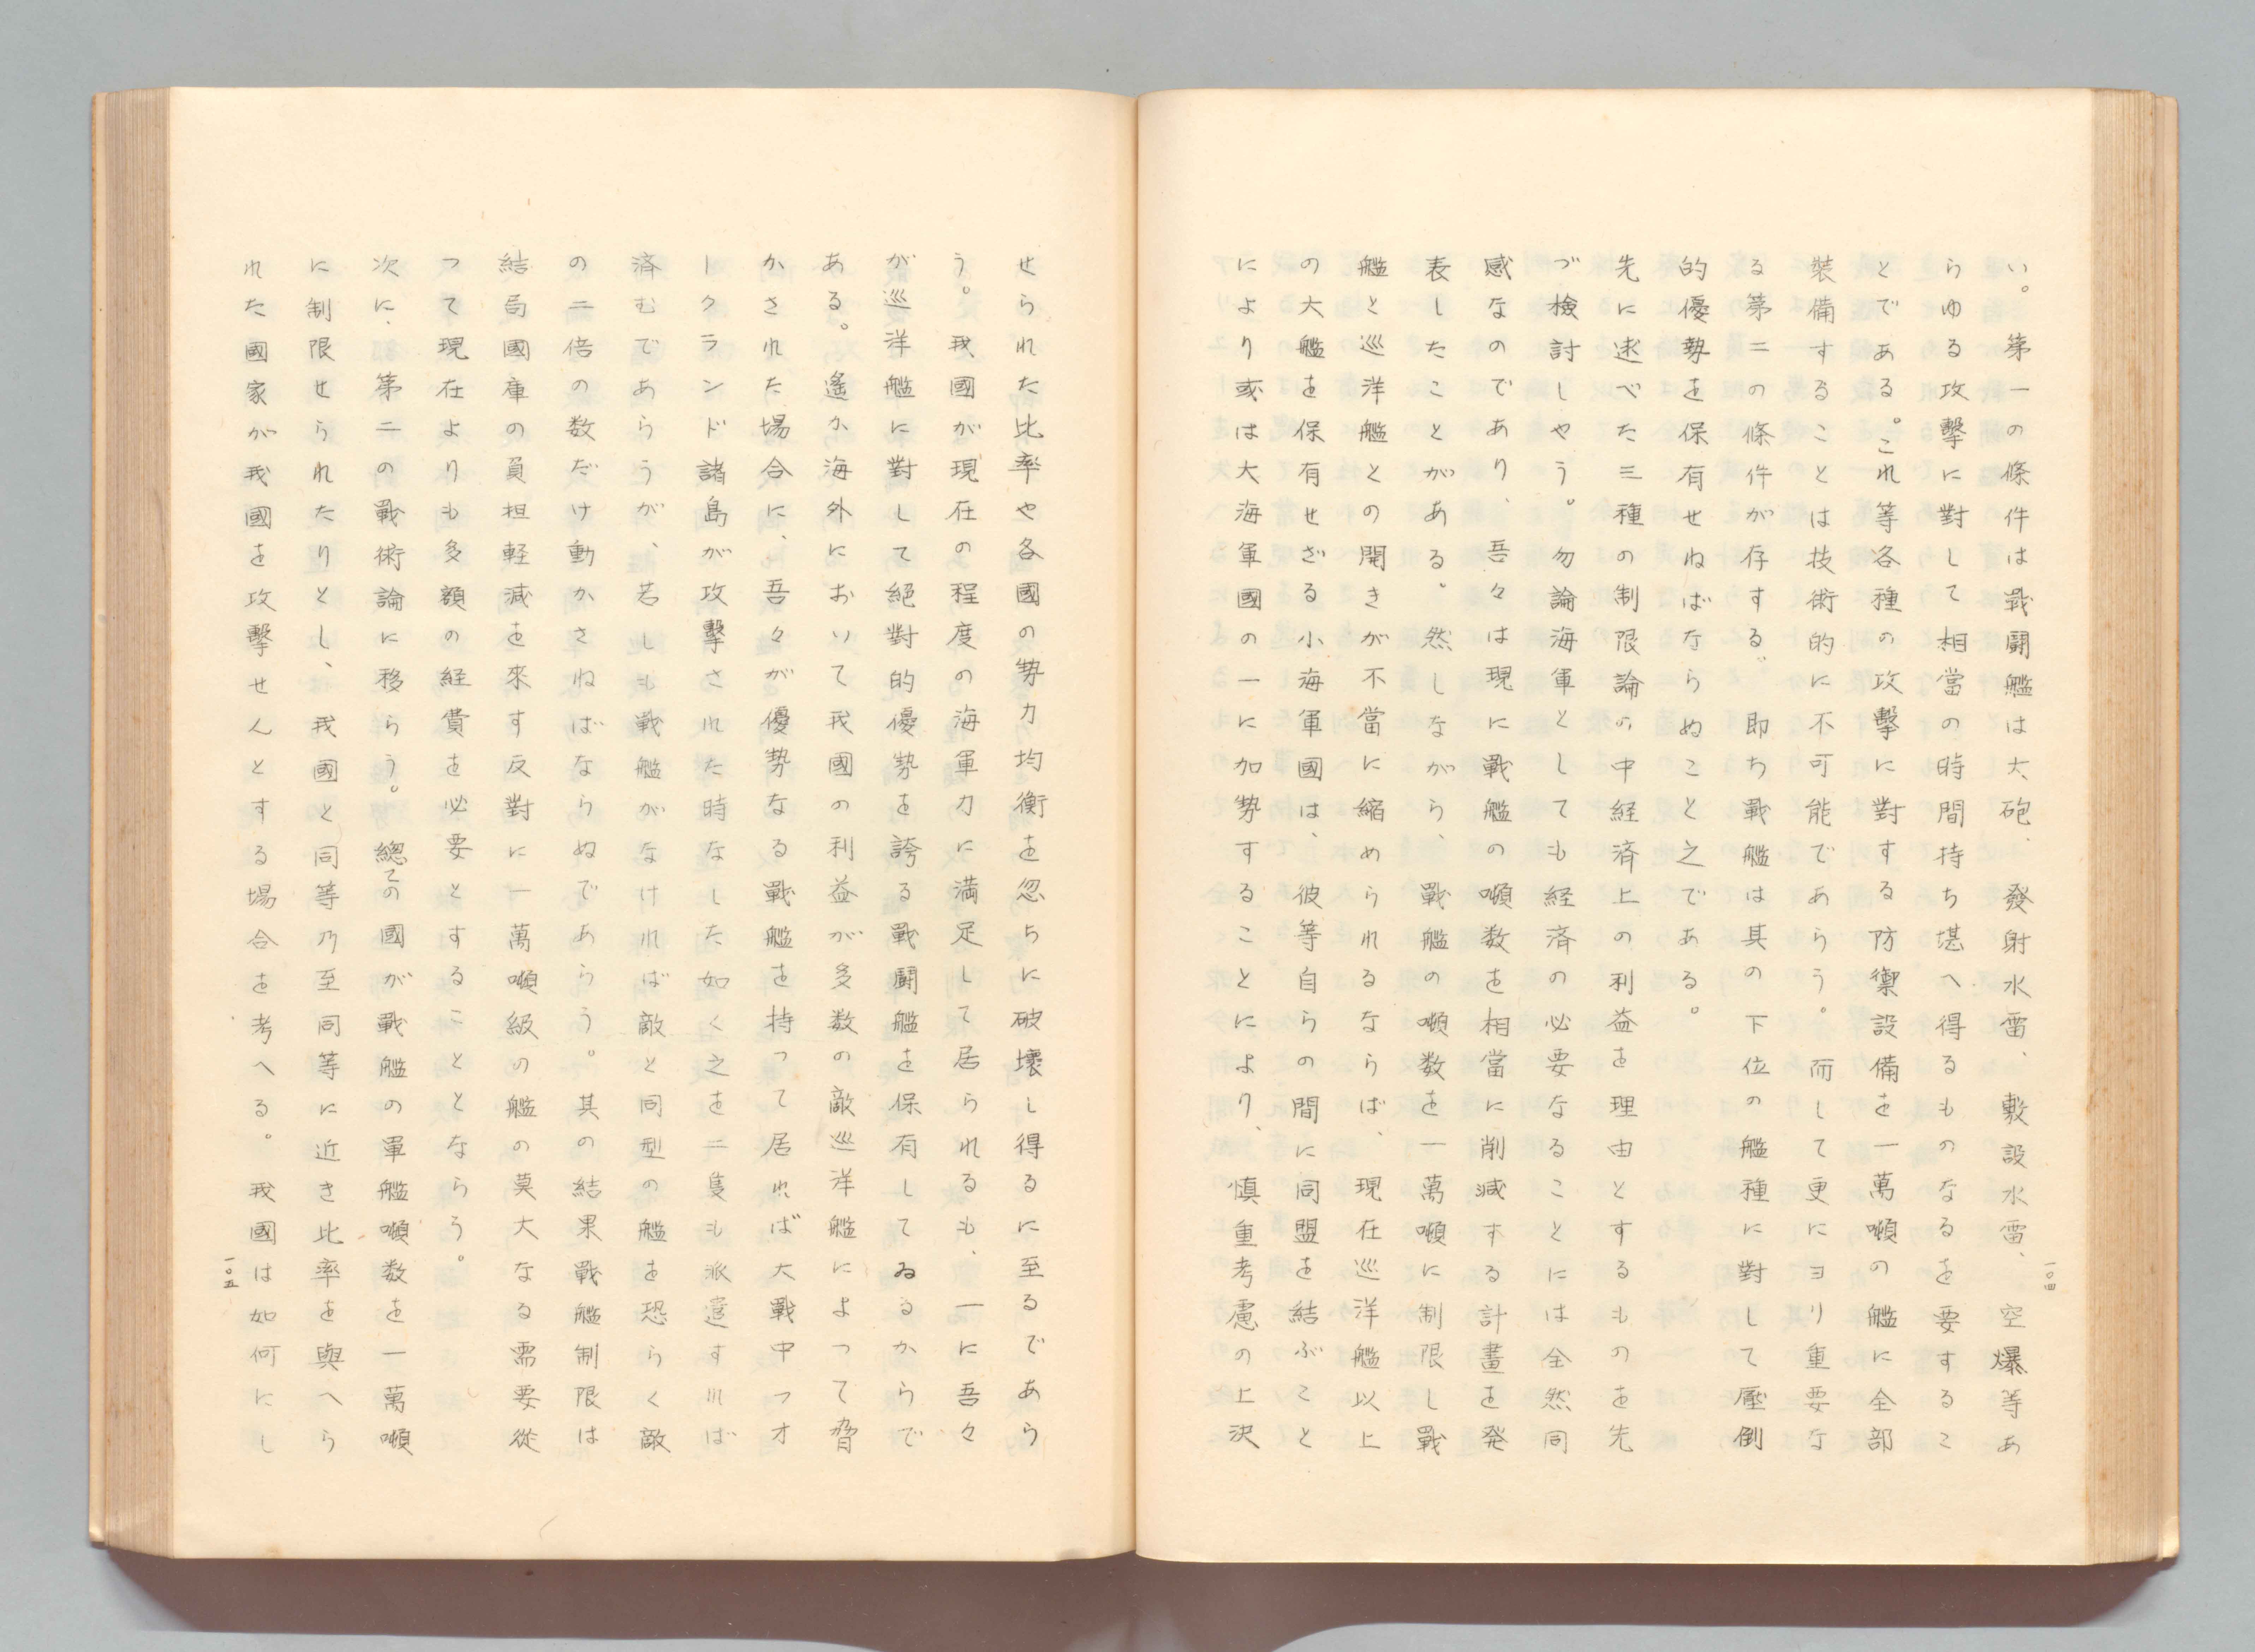 い。第一の條件は戰鬪艦は大砲、發射水雷、敷設水雷、空爆等あ
らゆる攻擊に對して相當の時間持ち堪へ得るものなるを要するこ
とである。これ等各種の攻擊に對する防禦設備を一萬噸の艦に全部
裝備することは技術的に不可能であらう。而して更にヨリ重要な
る第二の條件が存する。即ち戰艦は其の下位の艦種に對して壓倒
的優勢を保有せねばならぬこと之である。
先に述べた三種の制限論の中経済上の利益を理由とするものを先
づ檢討しやう。勿論海軍としても経済の必要なることには全然同
感なのであり、吾々は現に戰艦の噸数を相當に削減する計畫を発
表したことがある。然しながら、戰艦の噸数を一萬噸に制限し戰
艦と巡洋艦との開きが不當に縮められるならば、現在巡洋艦以上
の大艦を保有せざる小海軍國は、彼等自らの間に同盟を結ぶこと
により或は大海軍國の一に加勢することにより、慎重考慮の上決
一〇四
せられた比率や各國の勢力均衡を忽ちに破壞し得るに至るであら
う。我國が現在の程度の海軍力に満足して居られるも、一に吾々
が巡洋艦に對して絕對的優勢を誇る戰鬪艦を保有してゐるからで
ある。遙か海外において我國の利益が多数の敵巡洋艦によつて脅
かされた場合に、吾々が優勢なる戰艦を持つて居れば大戰中フオ
ークランド諸島が攻擊された時なした如く之を二隻も派遣すれば
済むであらうが、若しも戰艦がなければ敵と同型の艦を恐らく敵
の二倍の数だけ動かさねばならぬであらう。其の結果戰艦制限は
結局國庫の負担軽減を來す反對に一萬噸級の艦の莫大なる需要從
つて現在よりも多額の経費を必要とすることとならう。
次に、第二の戰術論に移らう。總ての國が戰艦の軍艦噸数を一萬噸
に制限せられたりとし、我國と同等乃至同等に近き比率を與へら
れた國家が我國を攻擊せんとする場合を考へる。我國は如何にし
一〇五